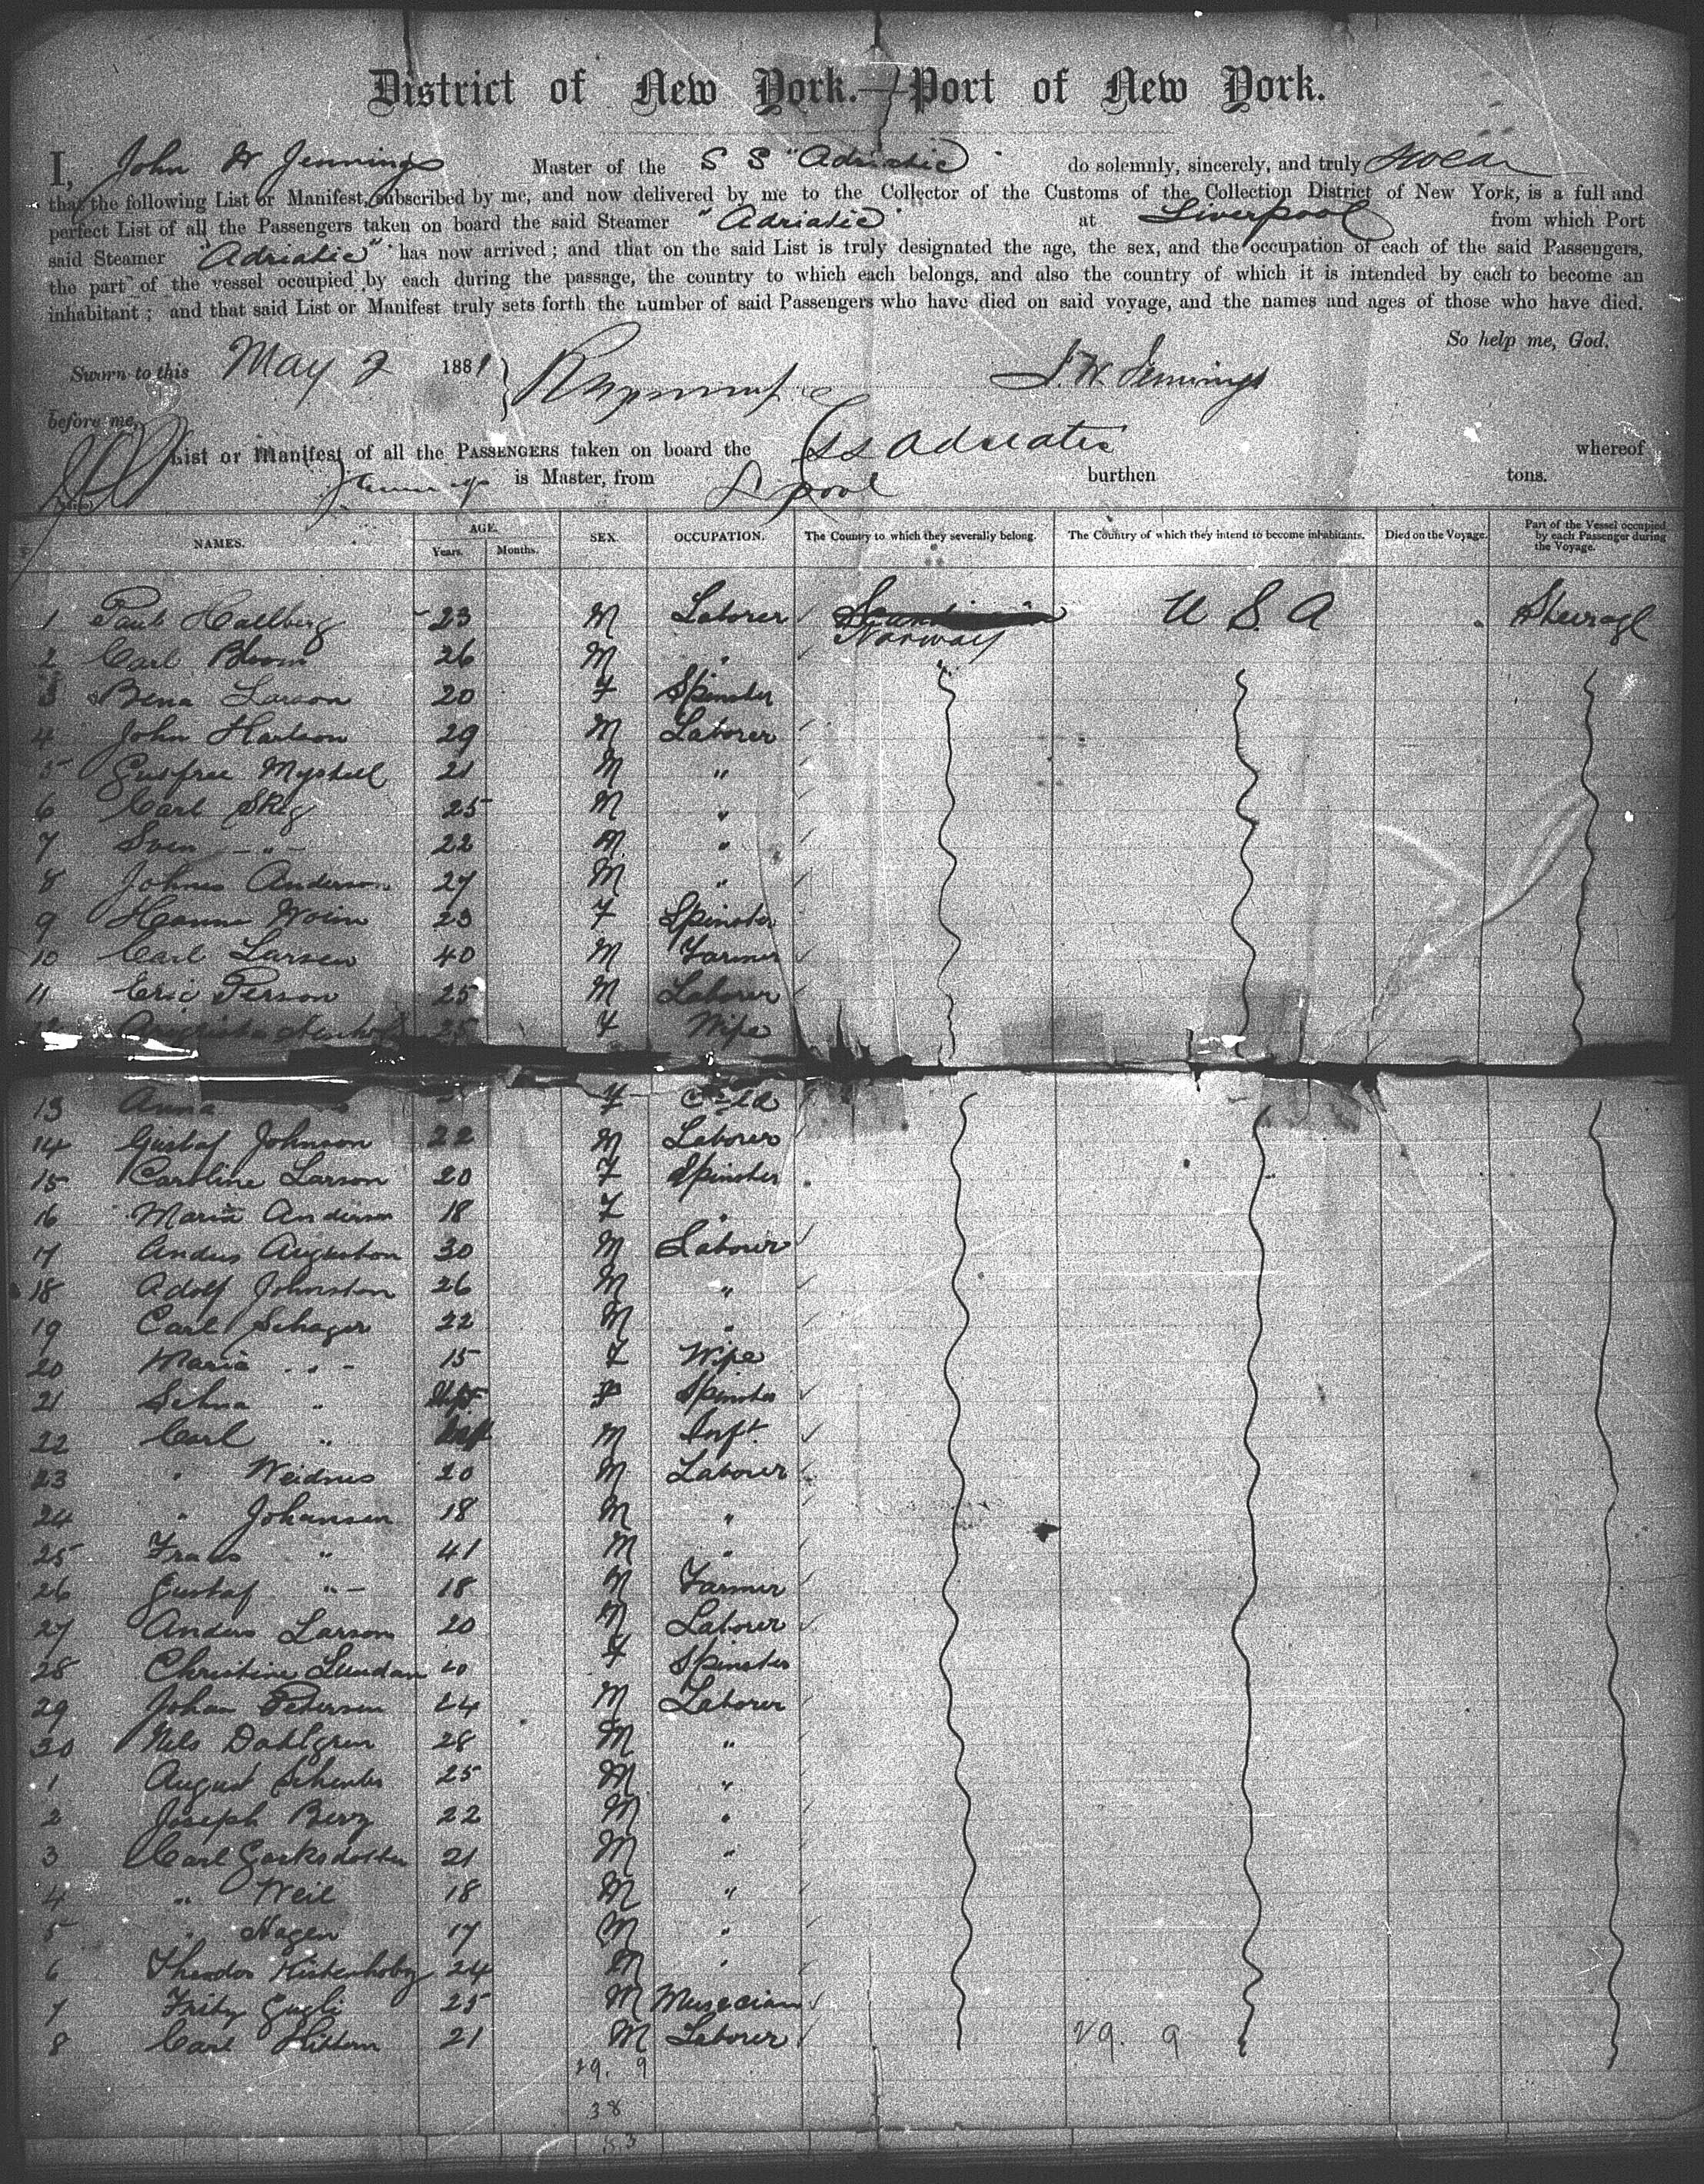 District of New York.—Port of New York.
I, John W Jennings Master of the S S "Adriatic" do solemnly, sincerely, and truly swear
that the following List or Manifest, subscribed by me, and now delivered by me to the Collector of the Customs of the Collection District of New York, is a full and
perfect List of all the Passengers taken on board the said Steamer "Adriatic" at Liverpool from which Port
said Steamer "Adriatic" has now arrived; and that on the said List is truly designated the age, the sex, and the occupation of each of the said Passengers,
the part of the vessel occupied by each during the passage, the country to which each belongs, and also the country of which it is intended by each to become an
inhabitant; and that said List or Manifest truly sets forth the number of said Passengers who have died on said voyage, and the names and ages of those who have died.
So help me, God.
Sworn to this May 2 1881 J. W. Jennings
before me,
List or Manifest of all the PASSENGERS taken on board the SS Adriatic whereof
Jennings is Master, from L'pool burthen tons.
NAMES. AGE. Years. Months. SEX. OCCUPATION. The Country to which they severally belong. The Country of which they intend to become inhabitants. Died on the Voyage. Part of the Vessel occupied by each Passenger during the Voyage.
1 Paul Hallberg 23 M Laborer Norway U S A Steerage
2 Carl Bloom 26 M "
3 Bena Larson 20 F Spinster
4 John Harlson 29 M Laborer
5 21 M "
6 Carl Skog 25 M "
7 Sven - " - 22 M "
8 Johnes Anderson 27 M "
9 Hanna 23 F Spinster
10 Carl Larsen 40 M Farmer
11 Eric Person 25 M Laborer
12 25 F Wife
13 Anna F Child
14 Gustaf Johnson 22 M Laborer
15 Caroline Larson 20 F Spinster
16 Maria Anderson 18 F "
17 Andus Auguston 30 M Laborer
18 Adolf Johnston 26 M "
19 Carl Schager 22 M "
20 Maria " - 15 F Wife
21 Selma " F Spinster
22 Carl " Inf M Inft
23 " Weidnes 20 M Laborer
24 " Johansen 18 M "
25 Frans " 41 M "
26 Gustaf " - 18 M Farmer
27 Anders Larson 20 M Laborer
28 Christine Lundan 20 F Spinster
29 Johan Petersen 24 M Laborer
30 Nels Dahlgren 28 M "
1 August 25 M "
2 Joseph Berg 22 M "
3 Carl 21 M "
4 " Weil 18 M "
5 " Hagen 17 M "
6 Theodor 24 M "
7 Fritz 25 M Musician
8 Carl 21 M Laborer
29. 9
29. 9
38